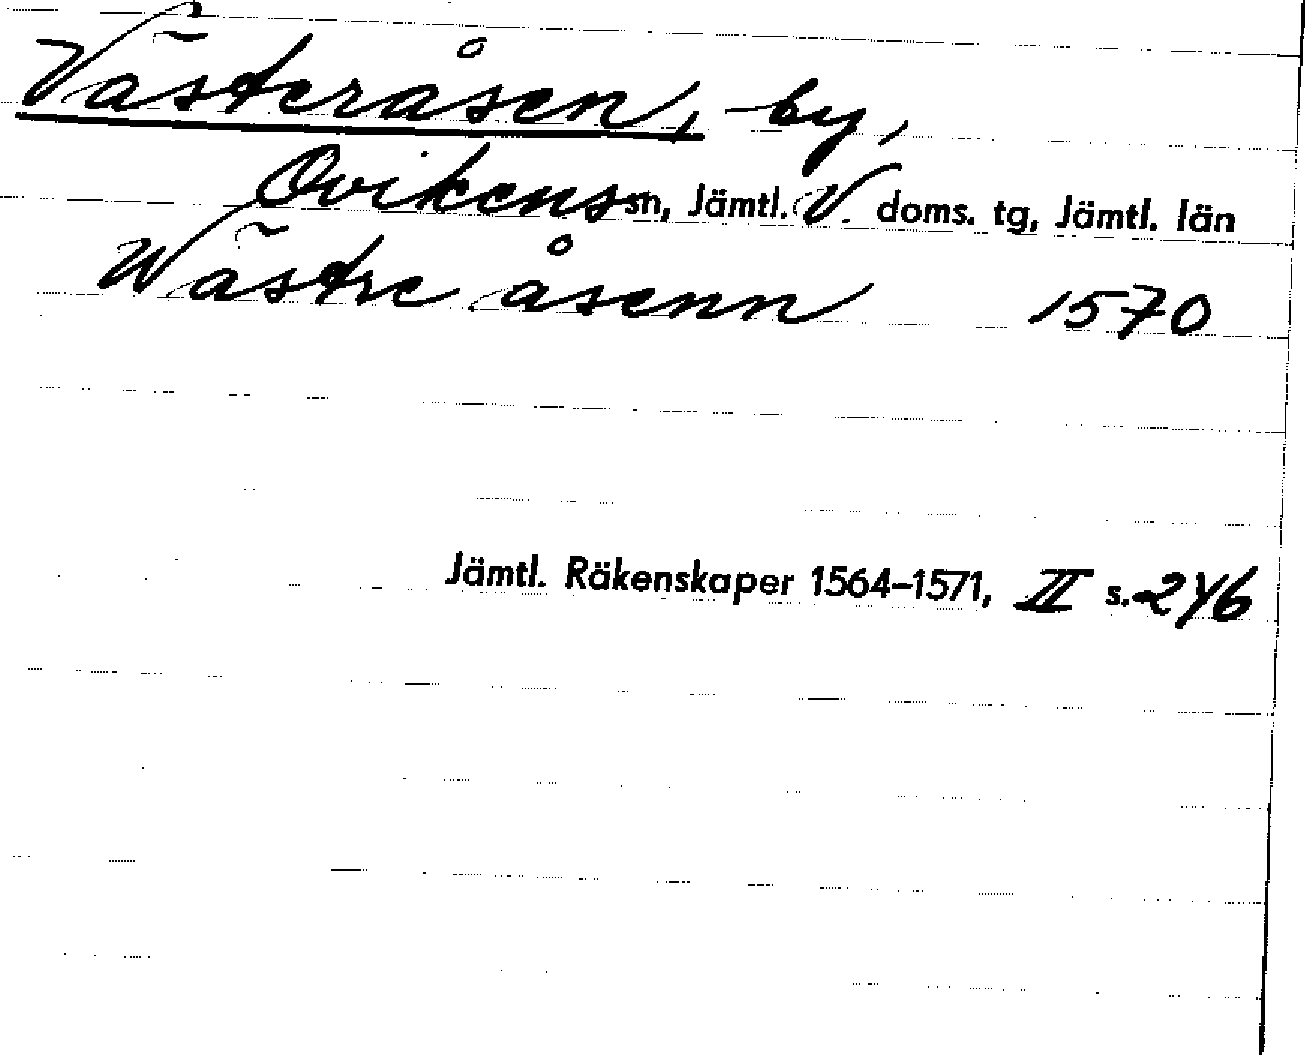 Västeråsen, by,
Ovikens sn, Jämtl. V. doms. tg, Jämtl. län
Wästre åsenn 1570
Jämtl. Räkenskaper 1564–1571, II s. 246